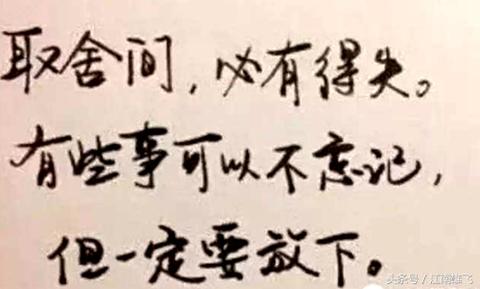 取舍间，必有得失。
有些事可以不忘记，
但一定要放下。
头条号/江湖雄飞